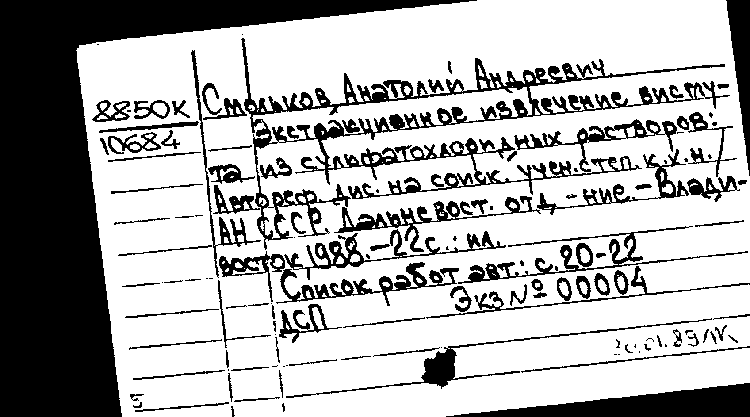 88-50К
10684
Смольков, Анатолий Андреевич.
Экстракционное извлечение висму-
та из сульфатохлоридных растворов:
Автореф. дис. на соиск. учен. степ. к.х.н. /
АН СССР. Дальневост. отд-ние. - Влади-
восток, 1988. - 22 с.: ил.
Список работ авт.: с. 20-22
ДСП Экз № 00004
5